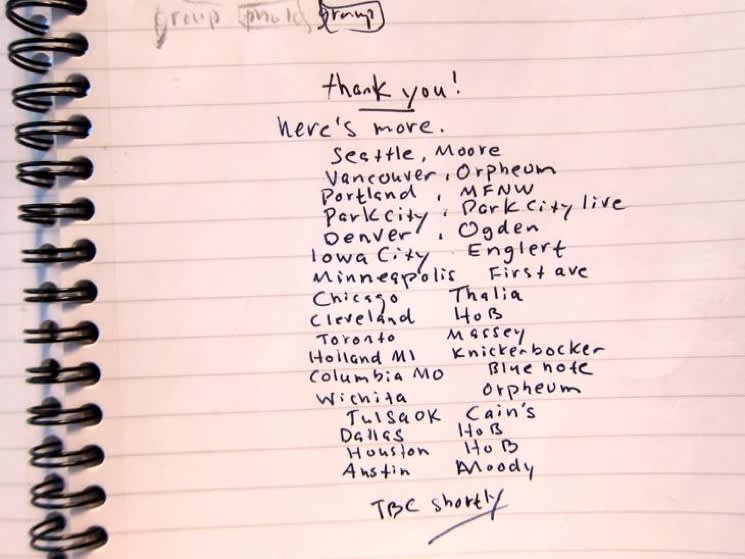 group photo group
thank you!
here's more.
Seattle, Moore
Vancouver, Orpheum
Portland, MFNW
Park City, Park City live
Denver, Ogden
Iowa City Englert
Minneapolis First ave
Chicago Thalia
Cleveland HoB
Toronto Massey
Holland MI Knickerbocker
Columbia MO Blue note
Wichita Orpheum
Tulsa OK Cain's
Dallas HoB
Houston HoB
Austin Moody
TBC shortly